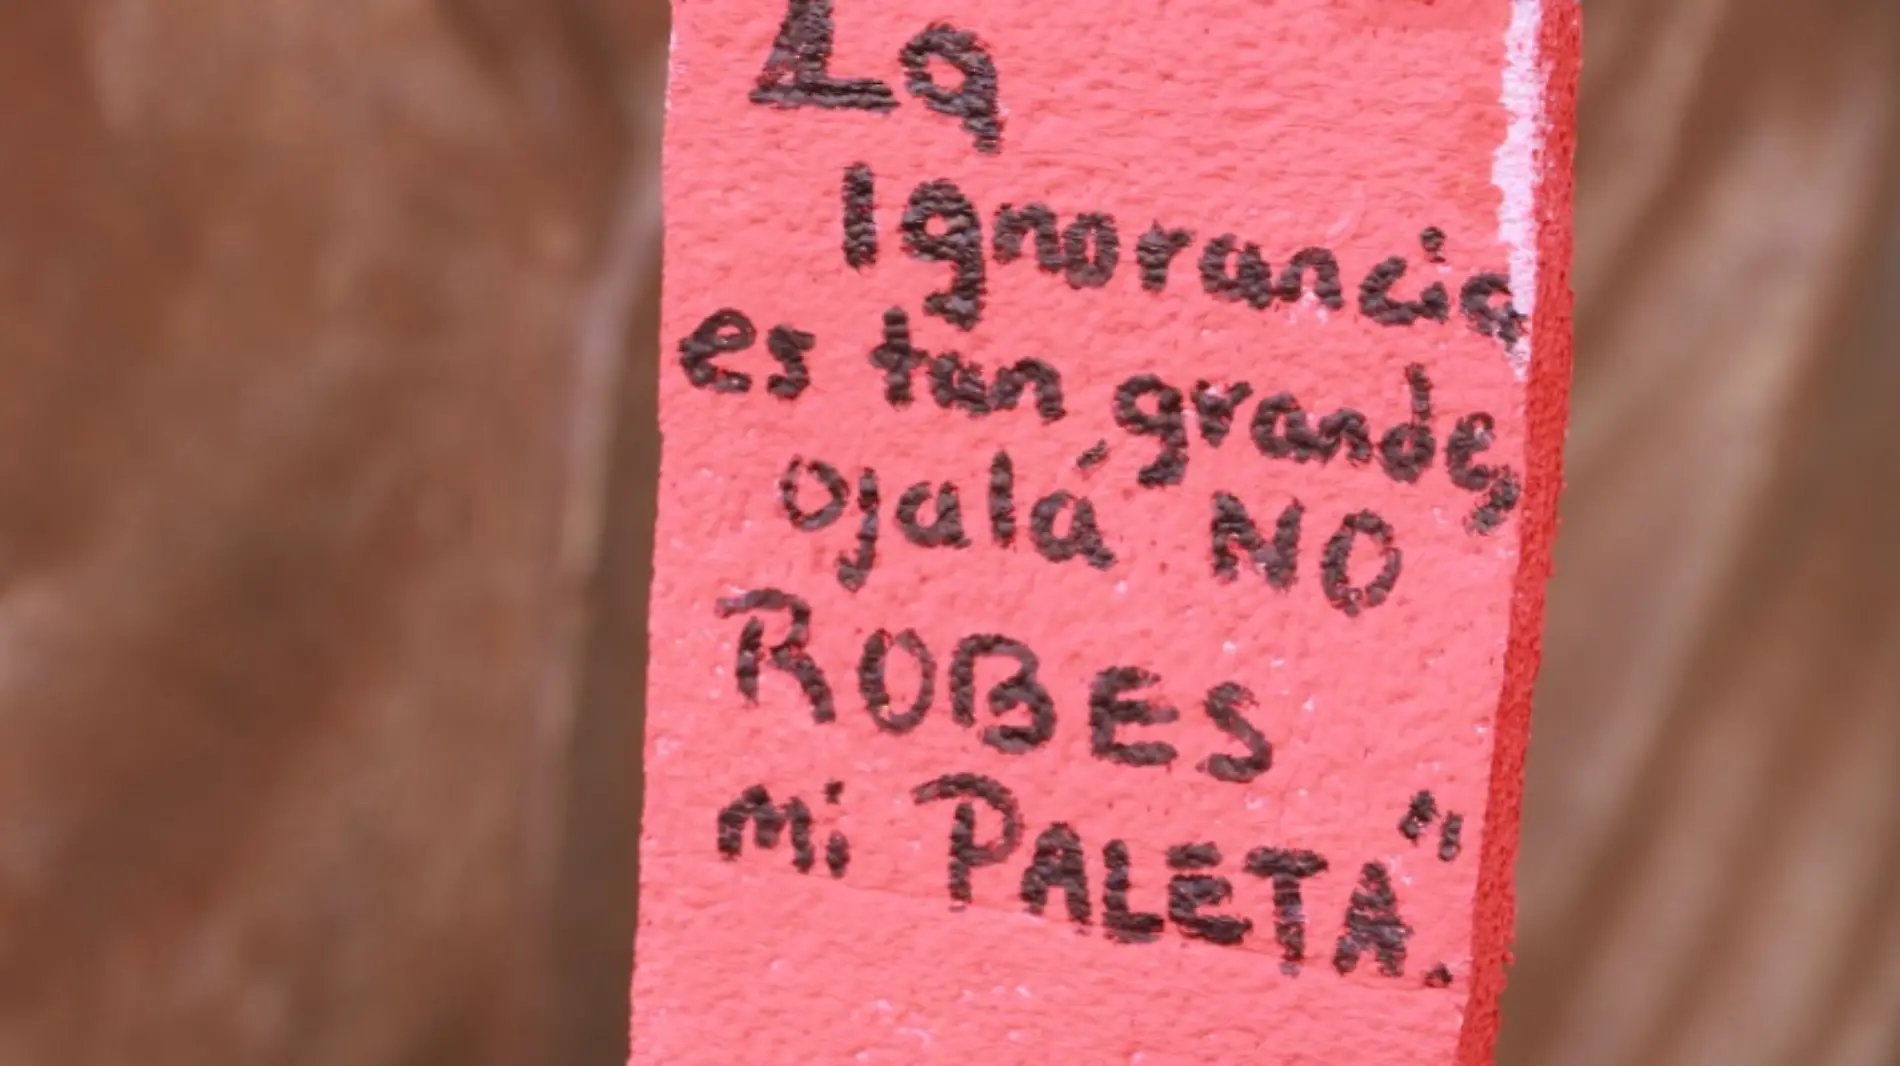 La
Ignorancia
es tan grande,
ojalá NO
ROBES
mi PALETA".